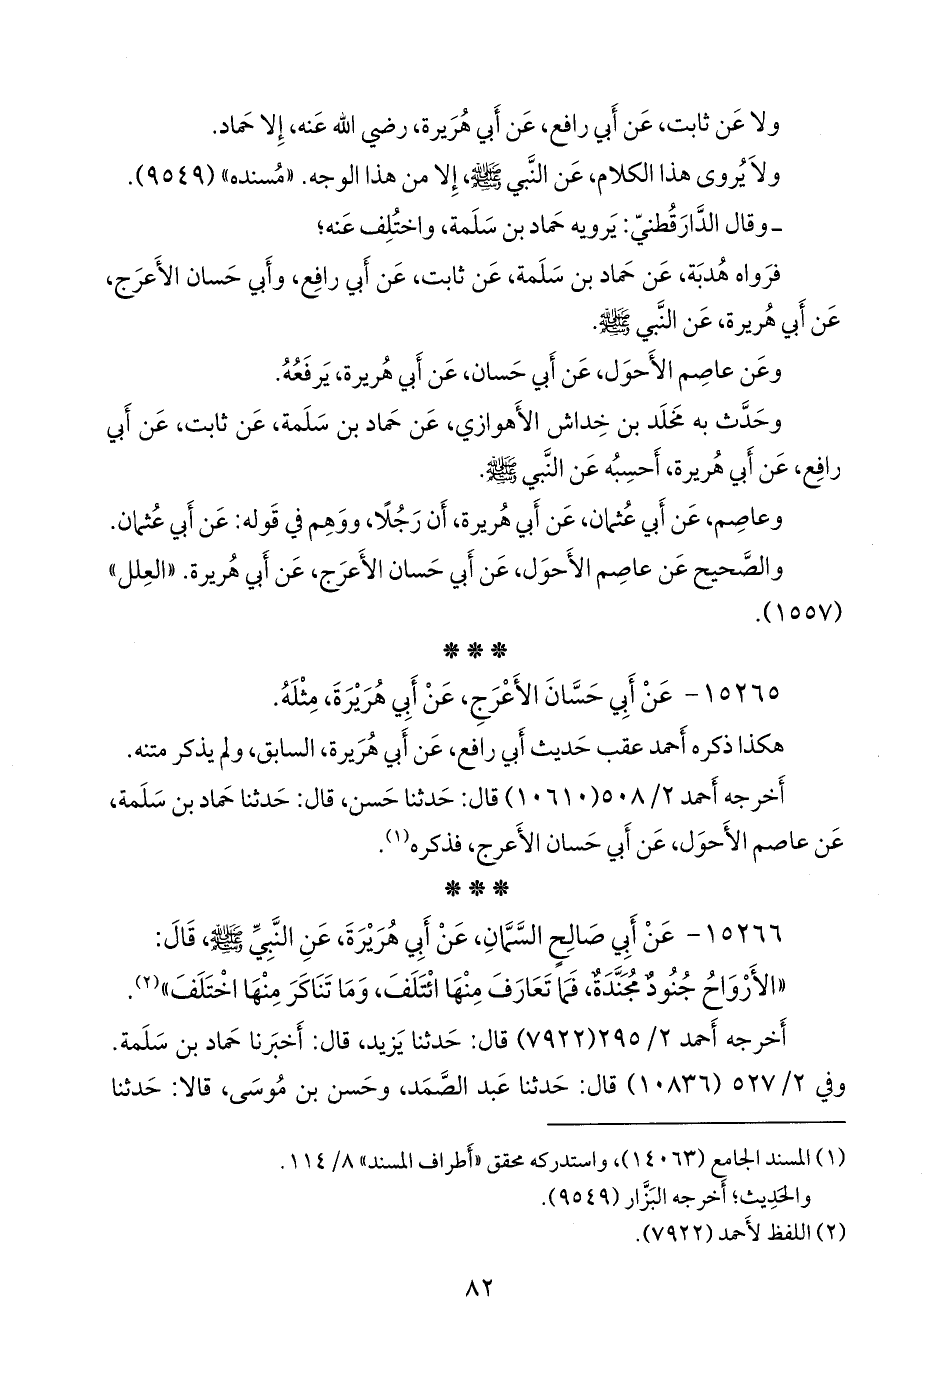 ولا عَن ثابت، عَن أَبي رافع، عَن أَبي هُرَيرة، رضي الله عَنه، إِلا حَماد.
ولاَ يُروى هذا الكلام، عَن النَّبي ﷺ، إِلا من هذا الوجه. «مُسنده» (٩٥٤٩).
ـ وقال الدَّارَقُطنيّ: يَرويه حَماد بن سَلَمة، واختُلِف عَنه؛
فرَواه هُدبَة، عَن حَماد بن سَلَمة، عَن ثابت، عَن أَبي رافِع، وأَبي حَسان الأَعرَج،
عَن أَبي هُريرة، عَن النَّبي ﷺ.
وعَن عاصِم الأَحوَل، عَن أَبي حَسان، عَن أَبي هُريرة، يَرفَعُهُ.
وحَدَّث به مَخلَد بن خِداش الأَهوازي، عَن حَماد بن سَلَمة، عَن ثابت، عَن أَبي
رافِع، عَن أَبي هُريرة، أَحسِبُه عَن النَّبي ﷺ.
وعاصِم، عَن أَبي عُثمان، عَن أَبي هُريرة، أَن رَجُلًا، ووَهِم في قَوله: عَن أَبي عُثمان.
والصَّحيح عَن عاصِم الأَحوَل، عَن أَبي حَسان الأَعرَج، عَن أَبي هُريرة. «العِلل»
(١٥٥٧).
* * *
١٥٢٦٥- عَنْ أَبِي حَسَّانَ الأَعْرَجِ، عَنْ أَبِي هُرَيْرَةَ، مِثْلَهُ.
هكذا ذكره أَحمد عقب حَديث أَبي رافع، عَن أَبي هُرَيرة، السابق، ولم يذكر متنه.
أَخرجه أَحمد ٢/ ٥٠٨(١٠٦١٠) قال: حَدثنا حَسن، قال: حَدثنا حَماد بن سَلَمة،
عَن عاصم الأَحوَل، عَن أَبي حَسان الأَعرج، فذكره(١).
* * *
١٥٢٦٦- عَنْ أَبِي صَالِحٍ السَّمَّانِ، عَنْ أَبِي هُرَيْرَةَ، عَنِ النَّبِيِّ ﷺ، قَالَ:
«الأَرْوَاحُ جُنُودٌ مُجَنَّدَةٌ، فَمَا تَعَارَفَ مِنْهَا ائْتَلَفَ، وَمَا تَنَاكَرَ مِنْهَا اخْتَلَفَ»(٢).
أَخرجه أَحمد ٢/ ٢٩٥(٧٩٢٢) قال: حَدثنا يَزيد، قال: أَخبَرنا حَماد بن سَلَمة.
وفي ٢/ ٥٢٧ (١٠٨٣٦) قال: حَدثنا عَبد الصَّمَد، وحَسن بن مُوسَى، قالا: حَدثنا
(١) المسند الجامع (١٤٠٦٣)، واستدركه محقق «أَطراف المسند» ٨/ ١١٤.
والحَدِيث؛ أَخرجه البَزَّار (٩٥٤٩).
(٢) اللفظ لأَحمد (٧٩٢٢).
٨٢